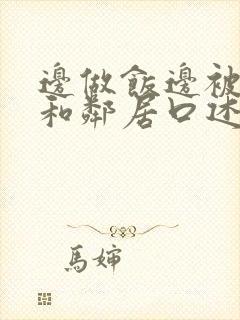 邊做飯邊被
和鄰居口述
馬婶